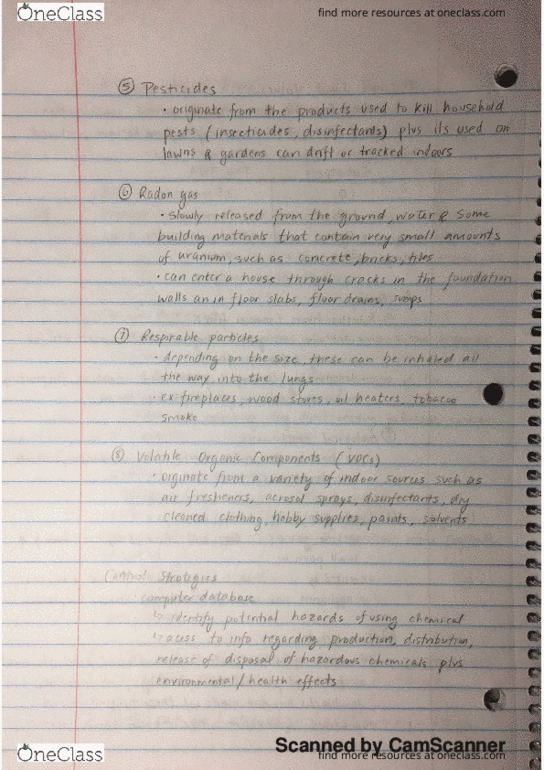 OneClass
find more resources at oneclass.com
⑤ Pesticides
• originate from the products used to kill household
pests (insecticides, disinfectants) plus its used on
lawns & gardens can drift or tracked indoors
⑥ Radon gas
• slowly released from the ground, water & some
building materials that contain very small amounts
of uranium, such as concrete, bricks, tiles
• can enter a house through cracks in the foundation
walls an in floor slabs, floor drains, sumps
⑦ Respirable particles
• depending on the size, these can be inhaled all
the way into the lungs
• ex fireplaces, wood stoves, oil heaters, tobacco
smoke
⑧ Volatile Organic Components (VOCs)
• originate from a variety of indoor sources such as
air fresheners, aerosol sprays, disinfectants, dry
cleaned clothing, hobby supplies, paints, solvents
Control Strategies
• computer database
↳ identify potential hazards of using chemical
↳ access to info regarding production, distribution,
release of disposal of hazardous chemicals plus
environmental/health effects
Scanned by CamScanner
OneClass
find more resources at oneclass.com